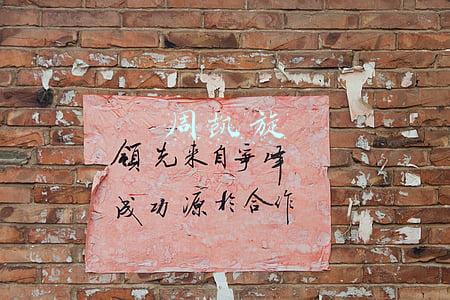 周凱旋
領先来自争峰
成功源於合作